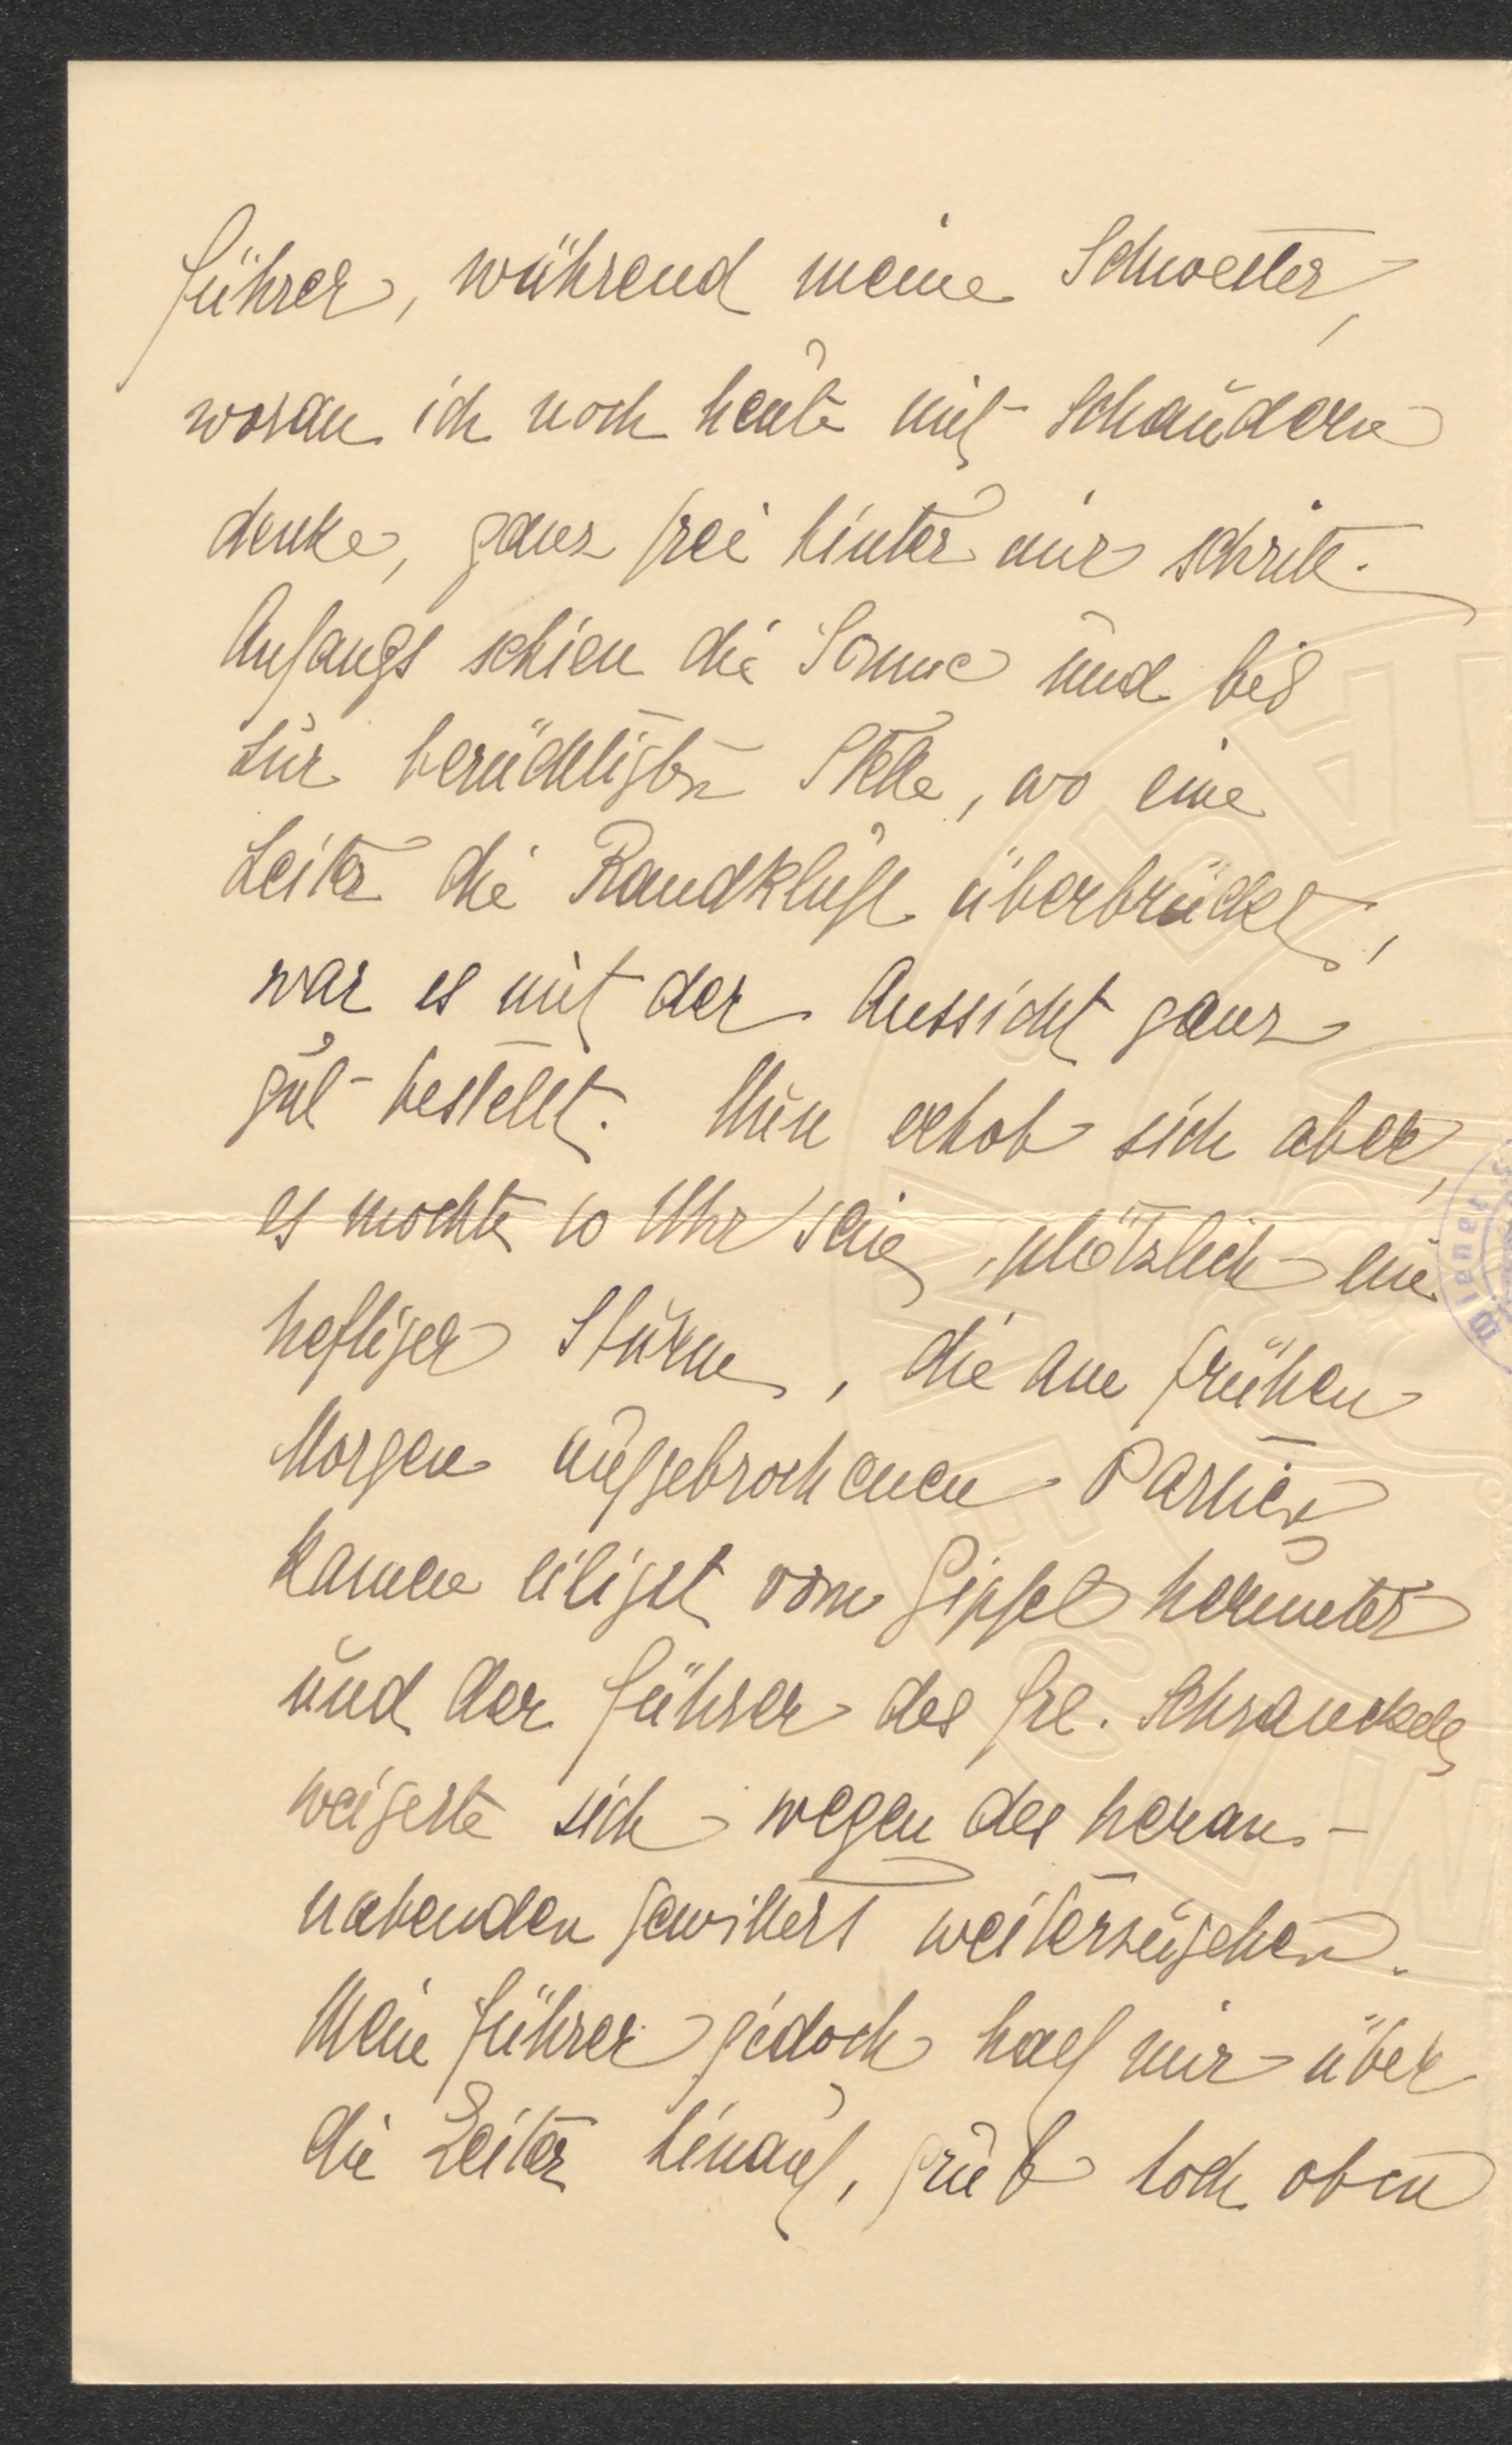 Führer, während meine Schwester,
woran ich noch heute mit Schaudern
denke, ganz frei hinter mir schritt.
Anfangs schien die Sonne und bis
zur berüchtigten Stelle, wo eine
Leiter die Randkluft überbrückt,
war es mit der Aussicht ganz
gut bestellt. Nun erhob sich aber,
es mochte 10 Uhr sein, plötzlich ein
heftiger Sturm, die am frühen
Morgen aufgebrochenen Partien
kamen eiligst vom Gipfel herunter
und der Führer des Frl.
weigerte sich wegen des heran-
nahenden Gewitters weiterzugehen.
Mein Führer jedoch half mir über
die Leiter hinauf, grub hoch oben
Wiener